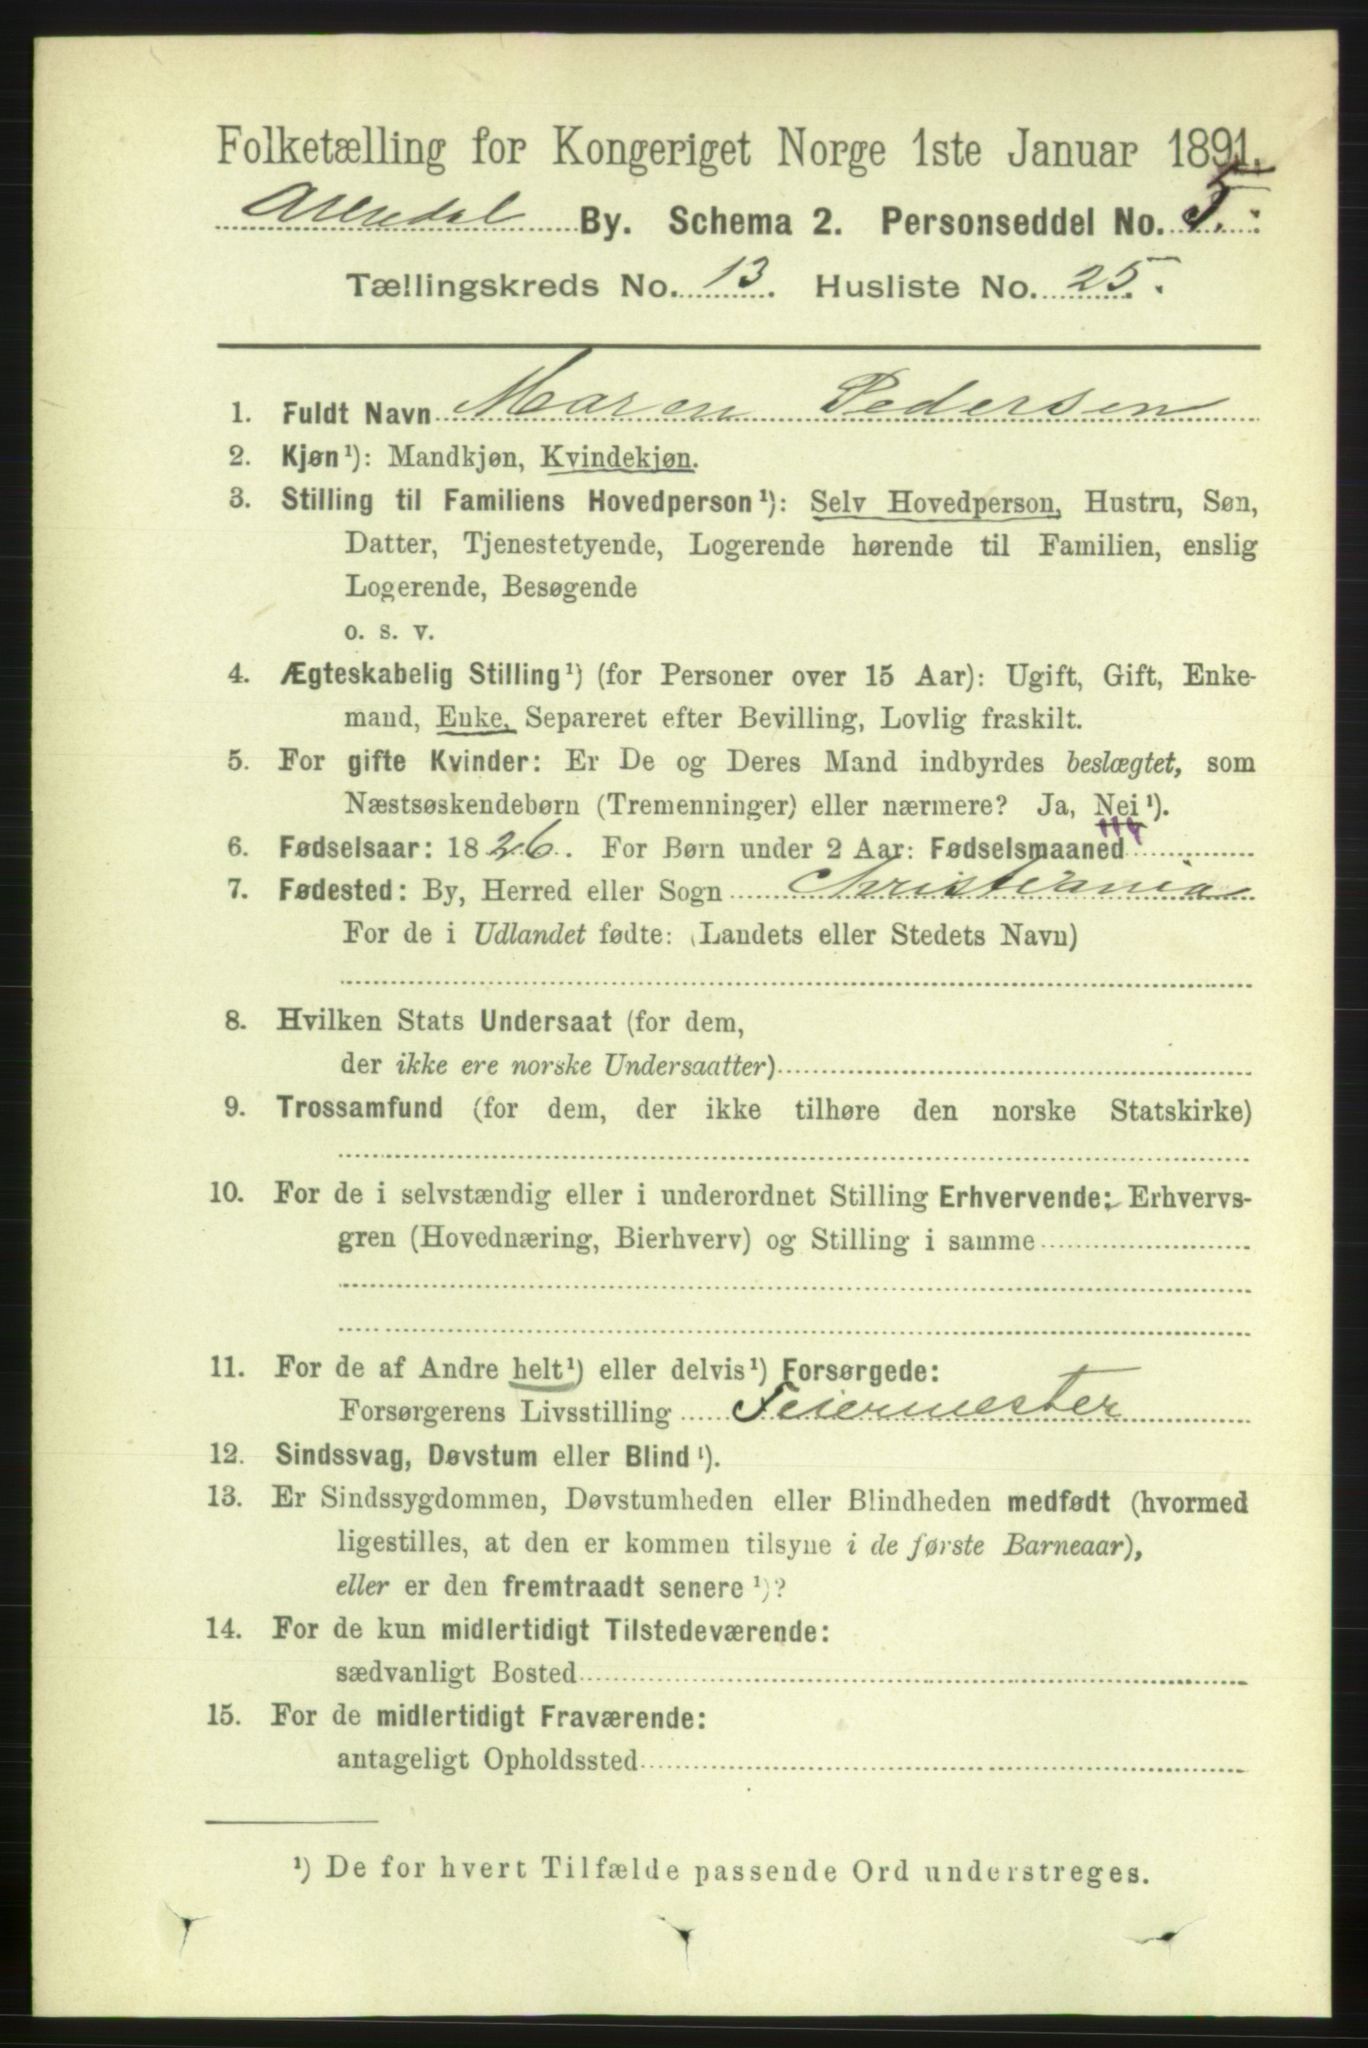 Folketælling for Kongeriget Norge 1ste Januar 1891.
Arendal By. Schema 2. Personseddel No. 5.
Tællingskreds No. 13. Husliste No. 25.
1. Fuldt Navn Maren Pedersen
2. Kjøn¹): Mandkjøn, Kvindekjøn.
3. Stilling til Familiens Hovedperson¹): Selv Hovedperson, Hustru, Søn,
Datter, Tjenestetyende, Logerende hørende til Familien, enslig
Logerende, Besøgende
o. s. v.
4. Ægteskabelig Stilling¹) (for Personer over 15 Aar): Ugift, Gift, Enke-
mand, Enke, Separeret efter Bevilling, Lovlig fraskilt.
5. For gifte Kvinder: Er De og Deres Mand indbyrdes beslægtet, som
Næstsøskendebørn (Tremenninger) eller nærmere? Ja, Nei¹).
6. Fødselsaar: 1826. For Børn under 2 Aar: Fødselsmaaned
7. Fødested: By, Herred eller Sogn Christiania
For de i Udlandet fødte: (Landets eller Stedets Navn)
8. Hvilken Stats Undersaat (for dem,
der ikke ere norske Undersaatter)
9. Trossamfund (for dem, der ikke tilhøre den norske Statskirke)
10. For de i selvstændig eller i underordnet Stilling Erhvervende: Erhvervs-
gren (Hovednæring, Bierhverv) og Stilling i samme
11. For de af Andre helt¹) eller delvis¹) Forsørgede:
Forsørgerens Livsstilling Feiermester
12. Sindssvag, Døvstum eller Blind¹).
13. Er Sindssygdommen, Døvstumheden eller Blindheden medfødt (hvormed
ligestilles, at den er kommen tilsyne i de første Barneaar),
eller er den fremtraadt senere¹)?
14. For de kun midlertidigt Tilstedeværende:
sædvanligt Bosted
15. For de midlertidigt Fraværende:
antageligt Opholdssted
¹) De for hvert Tilfælde passende Ord understreges.